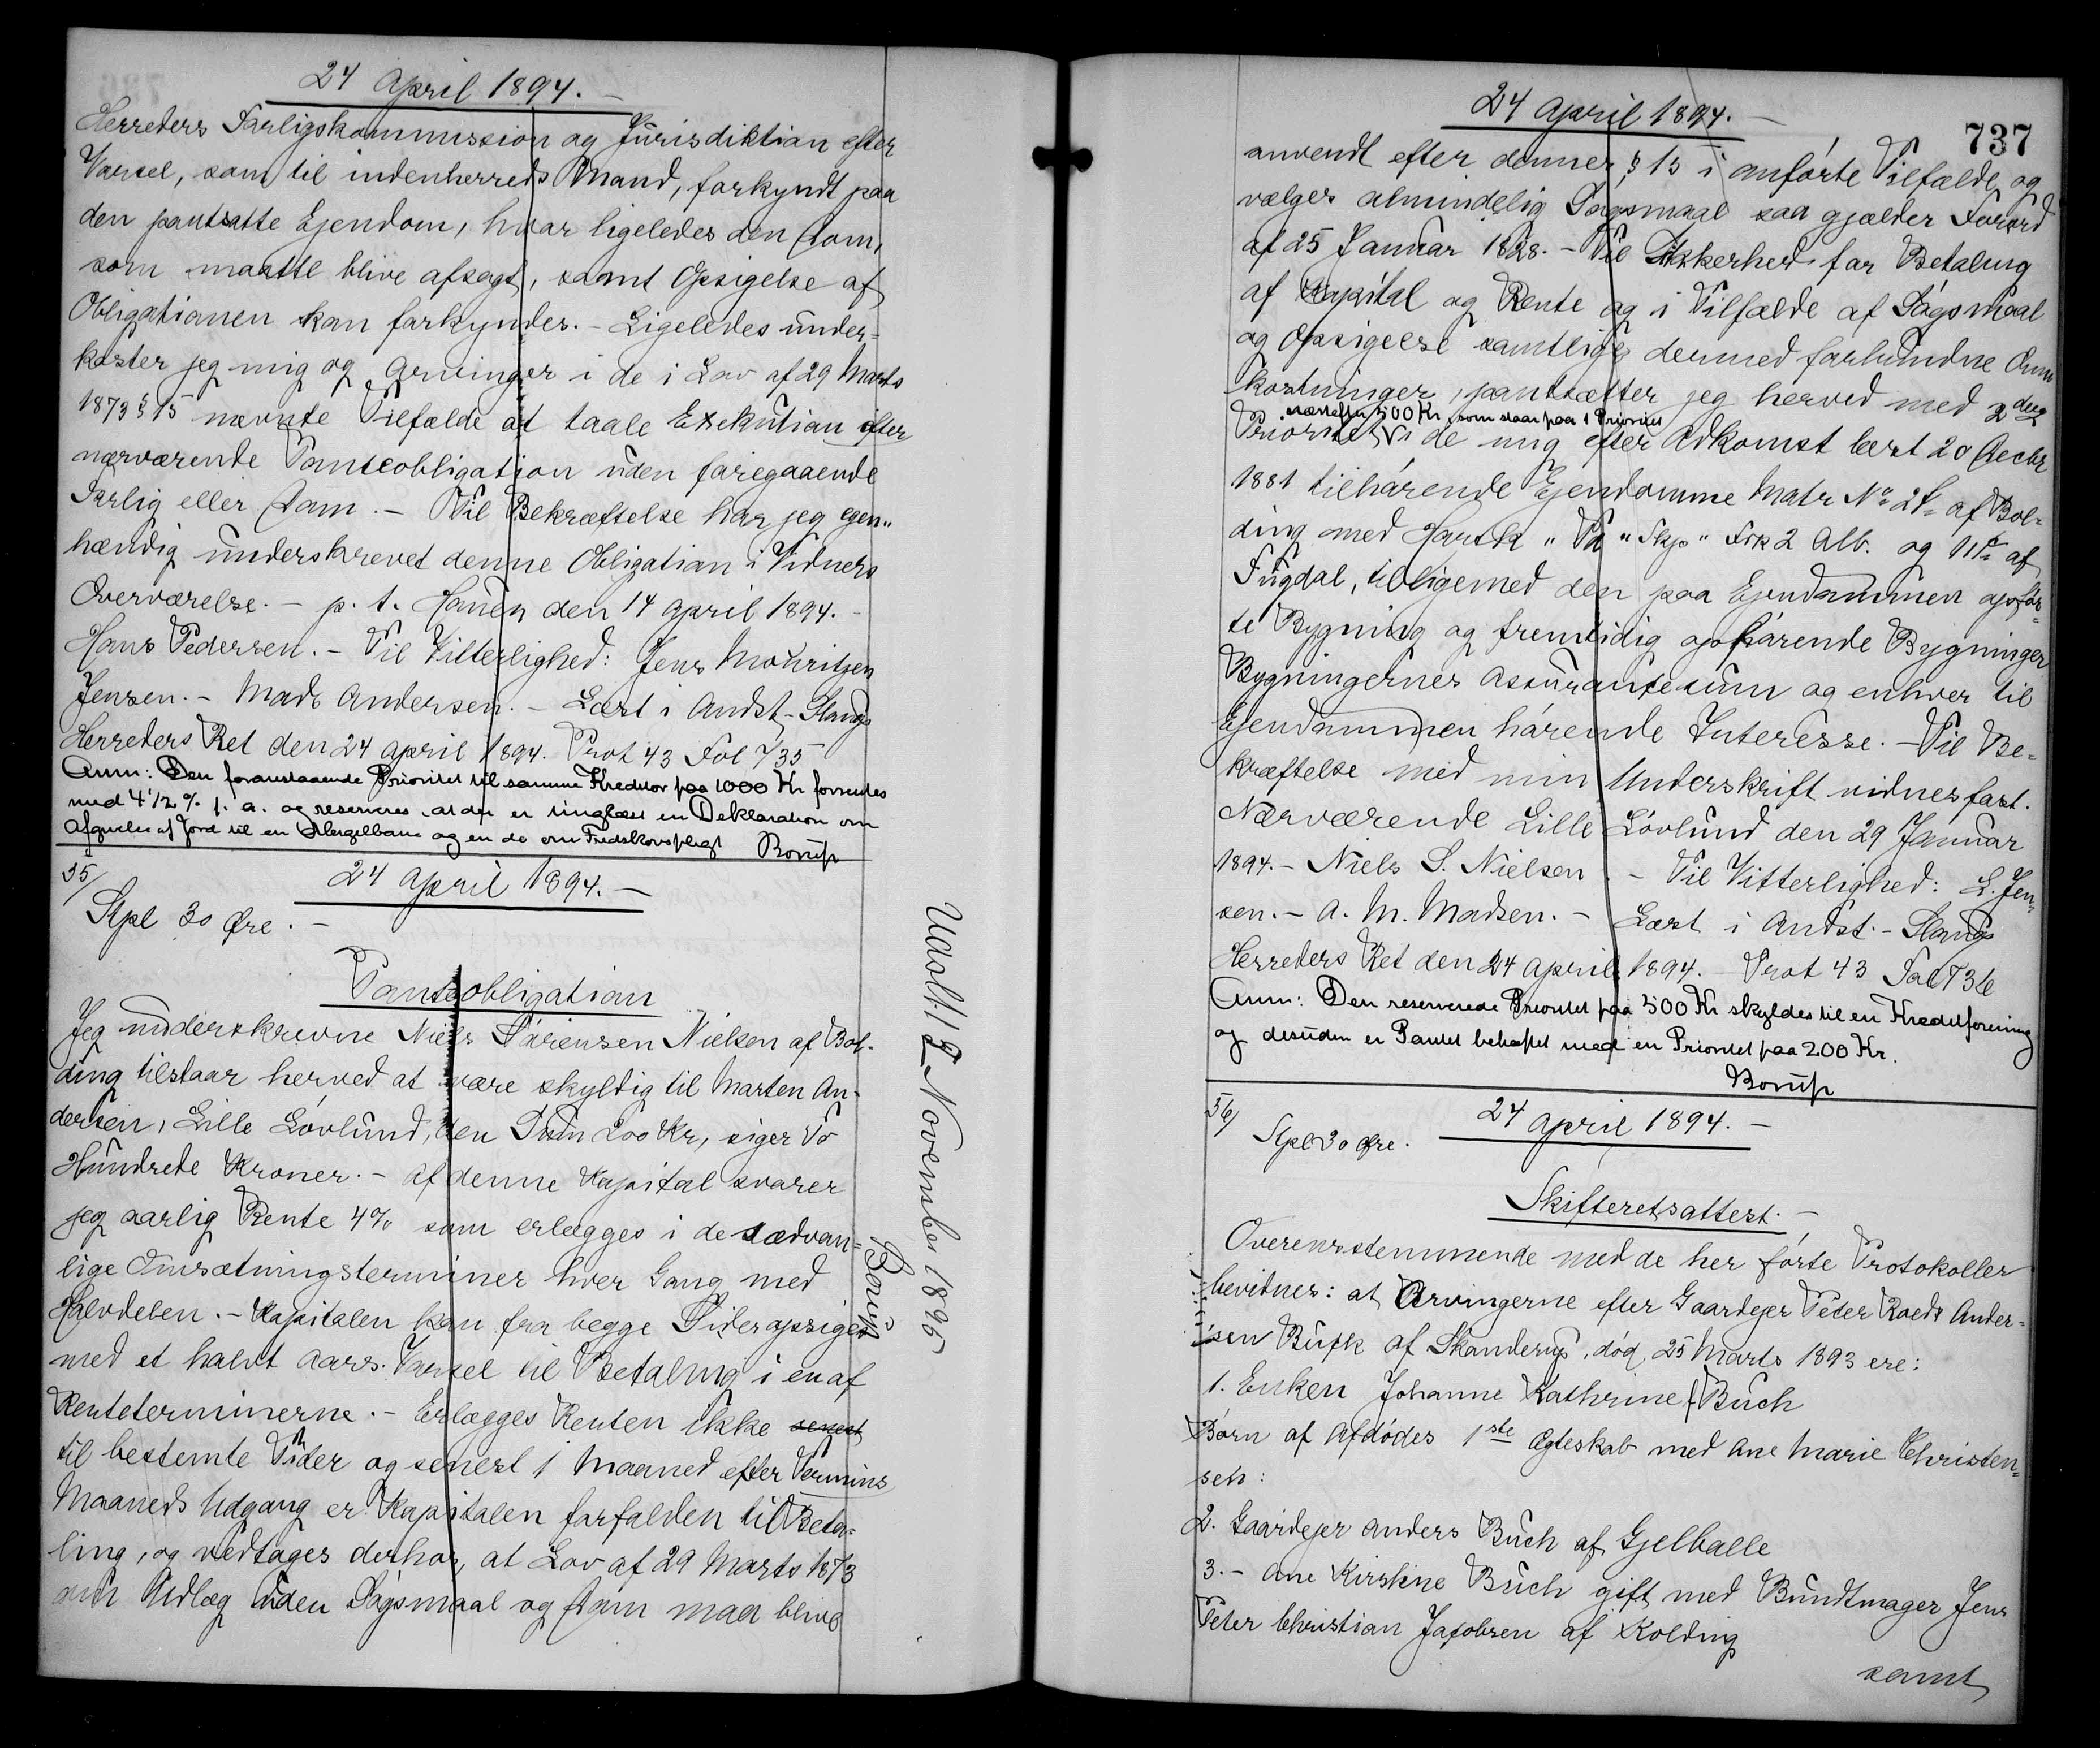 24 April 1894.
Herreders Forligskommission og Jurisdiktion efter
Varsel, som til indenherreds Mand, forkyndt paa
den pantsatte Ejendom, hvor ligeledes den Dom,
som maatte blive afsagt, samt Opsigelse af
Obligationen kan forkyndes. - Ligeledes under-
kaster jeg mig og Arvinger i de i Lov af 29 Marts
1873 § 15 nævnte Tilfælde at taale Exekution efter
nærværende Panteobligation uden foregaaende
Forlig eller Dom. - Til Bekræftelse har jeg egen-
hændig underskrevet denne Obligation i Vidners
Overværelse. - p. t. Hauen den 14 April 1894. -
Hans Pedersen. - Til Vitterlighed: Jens Mouritzen
Jensen. - Mads Andersen. - Læst i Andst-Slaugs
Herreders Ret den 24 April 1894. Prot 43 Fol 735
Anm: Den foranstaaende Prioritet til samme Kreditor paa 1000 Kr forrentes
med 4 1/2 % p. a. og reserveres at der er tinglæst en Deklaration om
Afgivelse af Jord til en Mergelbane og en do om Fredskovspligt Borup
55/
24 April 1894. -
Stpl 30 Øre. -
Panteobligation
Jeg underskrevne Niels Sørensen Nielsen af Bol-
ding tilstaar herved at være skyldig til Morten An-
dersen, Lille Løvlund, den Sum 200 Kr, siger To
Hundrede Kroner. - Af denne Kapital svarer
jeg aarlig Rente 4% som erlægges i de sædvan-
lige Omsætningsterminer hver Gang med
Halvdelen. - Kapitalen kan fra begge Sider opsiges
med et halvt Aars Varsel til Betaling i en af
Renteterminerne. - Erlægges Renten ikke senest
til bestemte Tider og senest 1 Maaned efter Termins
Maaneds Udgang er Kapitalen forfalden til Beta-
ling, og vedtages derhos, at Lov af 29 Marts 1873
om Udlæg uden Søgsmaal og Dom maa blive
Udslt 12 November 1895
Borup
24 April 1894. -
737
anvendt efter dennes § 15 i anførte Tilfælde og
vælges almindelig Søgsmaal saa gjælder Forord
af 25 Januar 1828. - Til Sikkerhed for Betaling
af Kapital og Rente og i Tilfælde af Søgsmaal
og Opsigelse samtlige dermed forbundne Om
kostninger, pantsætter jeg herved med 2den
næstefter 500 Kr, som staar paa 1 Prioritet
Prioritet V i de mig efter Adkomst læst 20 Decbr
1881 tilhørende Ejendomme Matr No 2f af Bol-
ding med Hartk " Td " Skp " Frk 2 Alb. og 11 af
Fugdal, tilligemed den paa Ejendommen opfør-
te Bygning og fremtidig opførende Bygninger
Bygningernes Assurancesum og enhver til
Ejendommen hørende Interesse. - Til Be-
kræftelse med min Underskrift vidnesfast.
Nærværende Lille Løvlund den 29 Januar
1894. - Niels S. Nielsen. - Til Vitterlighed: L. Jen-
sen. - A. M. Madsen. - Læst i Andst-Slaugs
Herreders Ret den 24 April 1894. - Prot 43 Fol 736
Anm: Den reserverede Prioritet paa 500 Kr skyldes til en Kreditforening
og desuden er Pantet behæftet med en Prioritet paa 200 Kr.
Borup
56/
24 April 1894. -
Stpl 30 Øre.
Skifteretsattest. -
Overensstemmende med de her førte Protokoller
bevidnes: at Arvingerne efter Gaardejer Peter Roeds Ander-
sen Buch af Skanderup, død 25 Marts 1893 ere:
1. Enken Johanne Kathrine Buch
Børn af Afdødes 1ste Ægteskab med Ane Marie Christen-
sen:
2. Gaardejer Anders Buch af Gjelballe
3. - Ane Kirstine Buch gift med Bundtmager Jens
Peter Christian Jacobsen af Kolding
samt